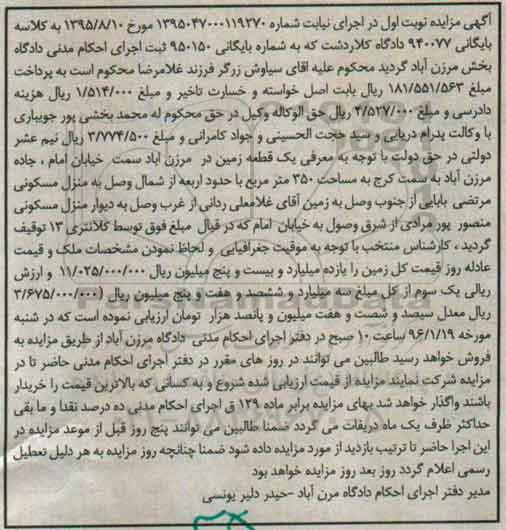 آگهی مزایده نوبت اول در اجرای نیابت شماره ۱۳۹۵۰۴۷۰۰۰۱۱۹۲۷۰ مورخ ۱۳۹۵/۸/۱۰ به کلاسه
بایگانی ۹۴۰۰۷۷ دادگاه کلاردشت که به شماره بایگانی ۹۵۰۱۵۰ ثبت اجرای احکام مدنی دادگاه
بخش مرزن آباد گردید محکوم علیه اقای سیاوش زرگر فرزند غلامرضا محکوم است به پرداخت
مبلغ ۱۸۱/۵۵۱/۵۶۳ ریال بابت اصل خواسته و خسارت تاخیر و مبلغ ۱/۵۱۴/۰۰۰ ریال هزینه
دادرسی و مبلغ ۲/۵۲۷/۰۰۰ ریال حق الوکاله وکیل در حق محکوم له محمد بخشی پور جویباری
با وکالت پدرام دریایی و سید حجت الحسینی و جواد کامرانی و مبلغ ۳/۷۷۴/۵۰۰ ریال نیم عشر
دولتی در حق دولت با توجه به معرفی یک قطعه زمین در مرزن آباد سمت خیابان امام ، جاده
مرزن آباد به سمت کرج به مساحت ۳۵۰ متر مربع با حدود اربعه از شمال وصل به منزل مسکونی
مرتضی بابایی از جنوب وصل به زمین آقای غلامعلی ردانی از غرب وصل به دیوار منزل مسکونی
منصور پور مرادی از شرق وصول به خیابان امام که در قبال مبلغ فوق توسط کلانتری ۱۳ توقیف
گردید ، کارشناس منتخب با توجه به موقیت جغرافیایی و لحاظ نمودن مشخصات ملک و قیمت
عادله روز قیمت کل زمین را یازده میلیارد و بیست و پنج میلیون ریال ۱۱/۰۲۵/۰۰۰/۰۰۰ و ارزش
ریالی یک سوم از کل مبلغ سه میلیارد و ششصد و هفت و پنج میلیون ریال (۳/۶۷۵/۰۰۰/۰۰۰
ریال معدل سیصد و شصت و هفت میلیون و پانصد هزار تومان ارزیابی نموده است که در شنبه
مورخه ۹۶/۱/۱۹ ساعت ۱۰ صبح در دفتر اجرای احکام مدنی دادگاه مرزن آباد از طریق مزایده به
فروش خواهد رسید طالبین می توانند در روز های مقرر در دفتر اجرای احکام مدنی حاضر تا در
مزایده شرکت نمایند مزایده از قیمت ارزیابی شده شروع و به کسانی که بالاترین قیمت را خریدار
باشند واگذار خواهد شد بهای مزایده برابر ماده ۱۲۹ ق اجرای احکام مدنی ده درصد نقدا و ما بقی
حداکثر ظرف یک ماه دریفات می گردد ضمنا طالبین می توانند پنج روز قبل از موعد مزایده در
این اجرا حاضر تا ترتیب بازدید از مورد مزایده داده شود ضمنا چنانچه روز مزایده به هر دلیل تعطیل
رسمی اعلام گردد روز بعد روز مزایده خواهد بود
مدیر دفتر اجرای احکام دادگاه مرن آباد -حیدر دلیر یونسی